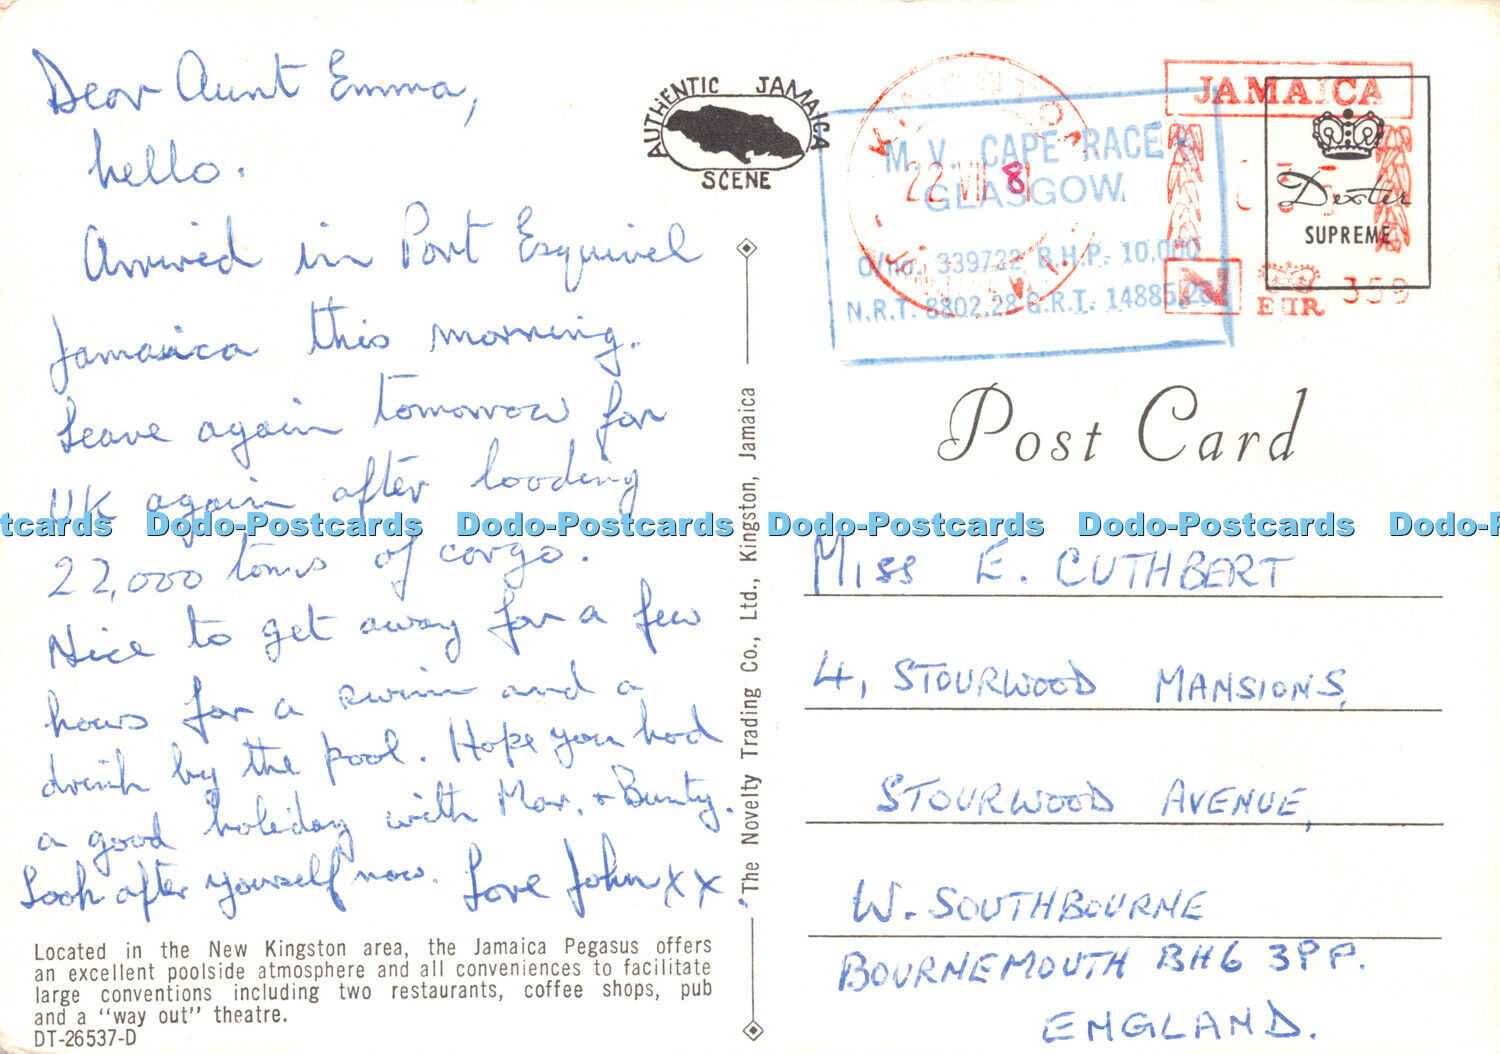 Dear Aunt Emma,
hello.
Arrived in Port Esquivel
Jamaica this morning.
Leave again tomorrow for
UK again after loading
22,000 tons of cargo.
Nice to get away for a few
hours for a swim and a
drink by the pool. Hope you had
a good holiday with Mar. + Bunty.
Look after yourself now. Love John xx.
Located in the New Kingston area, the Jamaica Pegasus offers
an excellent poolside atmosphere and all conveniences to facilitate
large conventions including two restaurants, coffee shops, pub
and a "way out" theatre.
DT-26537-D
AUTHENTIC JAMAICA
SCENE
The Novelty Trading Co., Ltd., Kingston, Jamaica
M.V. CAPE RACE
GLASGOW
O/no. 339722 B.H.P. 10,000
N.R.T. 8802.28 G.R.T. 14885.26
22 VII 81
JAMAICA
N
EIIR 359
Dexter
SUPREME
Post Card
MISS E. CUTHBERT
4, STOURWOOD MANSIONS,
STOURWOOD AVENUE,
W. SOUTHBOURNE
BOURNEMOUTH BH6 3PP.
ENGLAND.
tcards Dodo-Postcards Dodo-Postcards Dodo-Postcards Dodo-Postcards Dodo-P